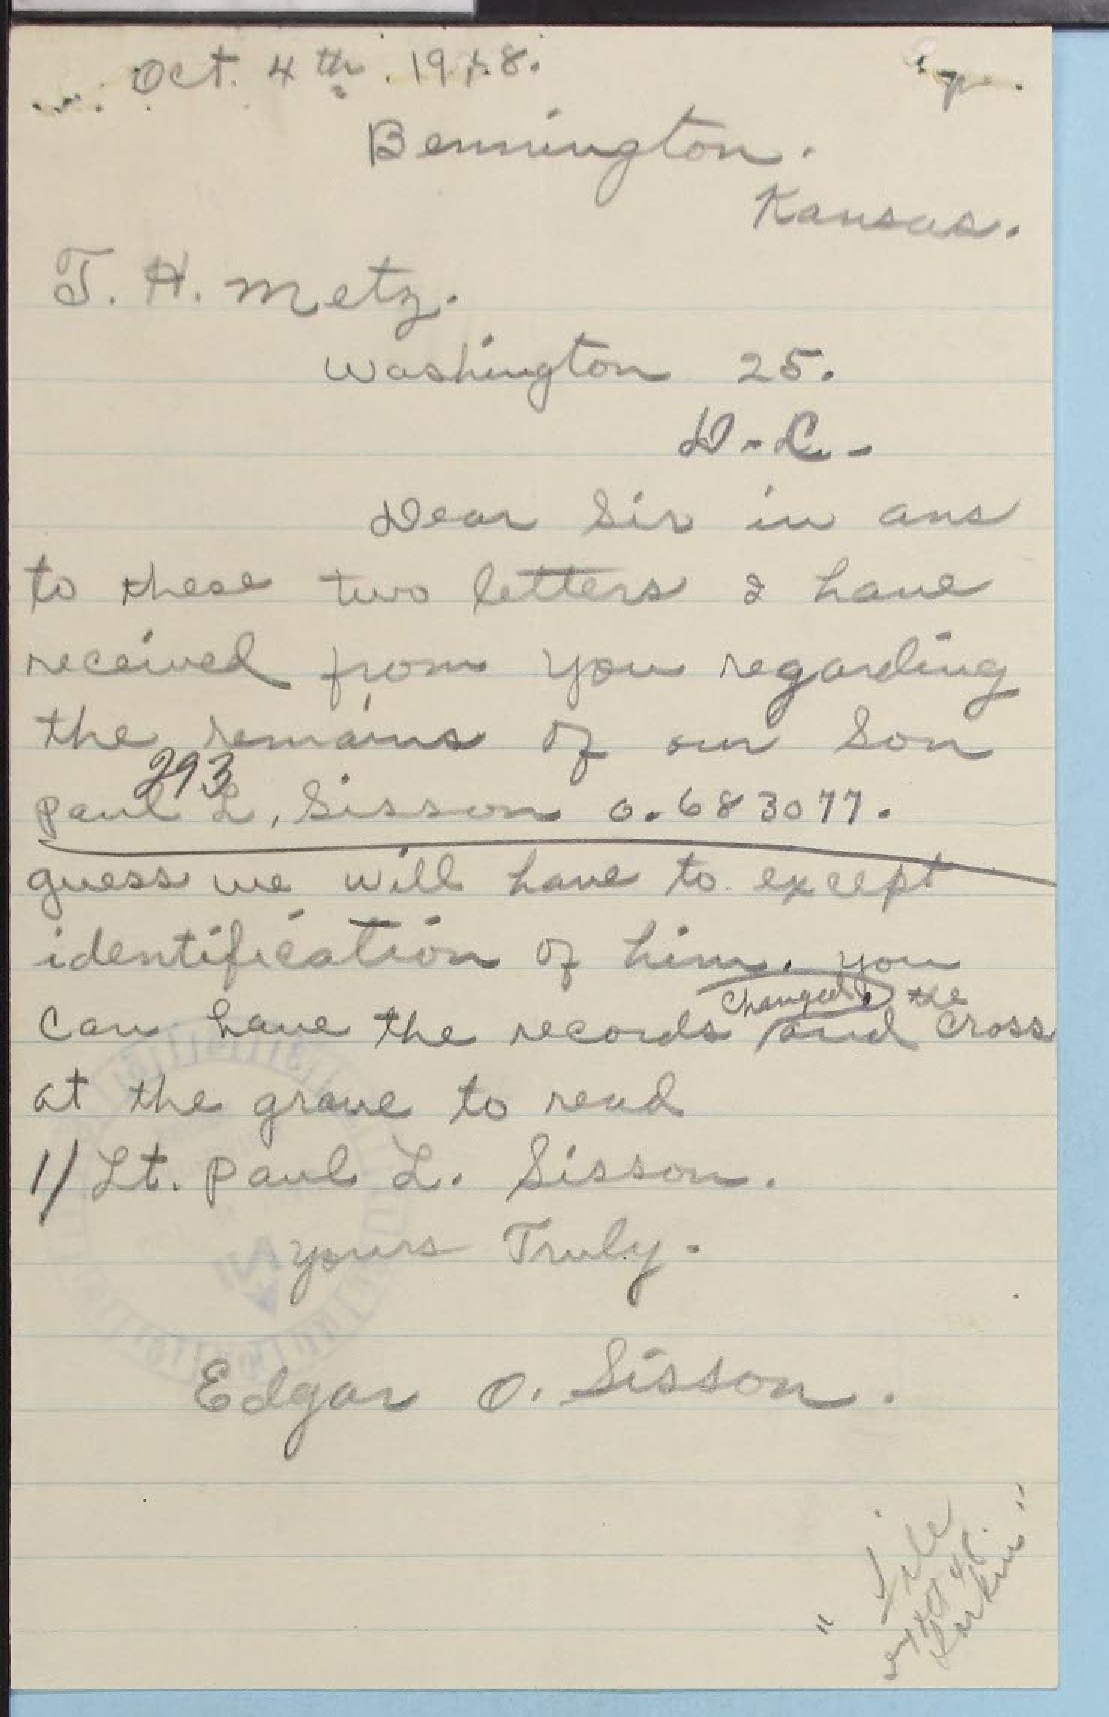 Oct. 4th. 1948.
Bennington.
Kansas.
T. H. Metz.
Washington 25.
D.C.
Dear Sir in ans
to these two letters I have
received from you regarding
the remains of our Son
293
Paul L, Sisson O.683077.
guess we will have to except
identification of him. you
changed the
can have the records and cross
at the grave to read
1/Lt. Paul L. Sisson.
yours Truly.
Edgar O. Sisson.
" File
Larkin "